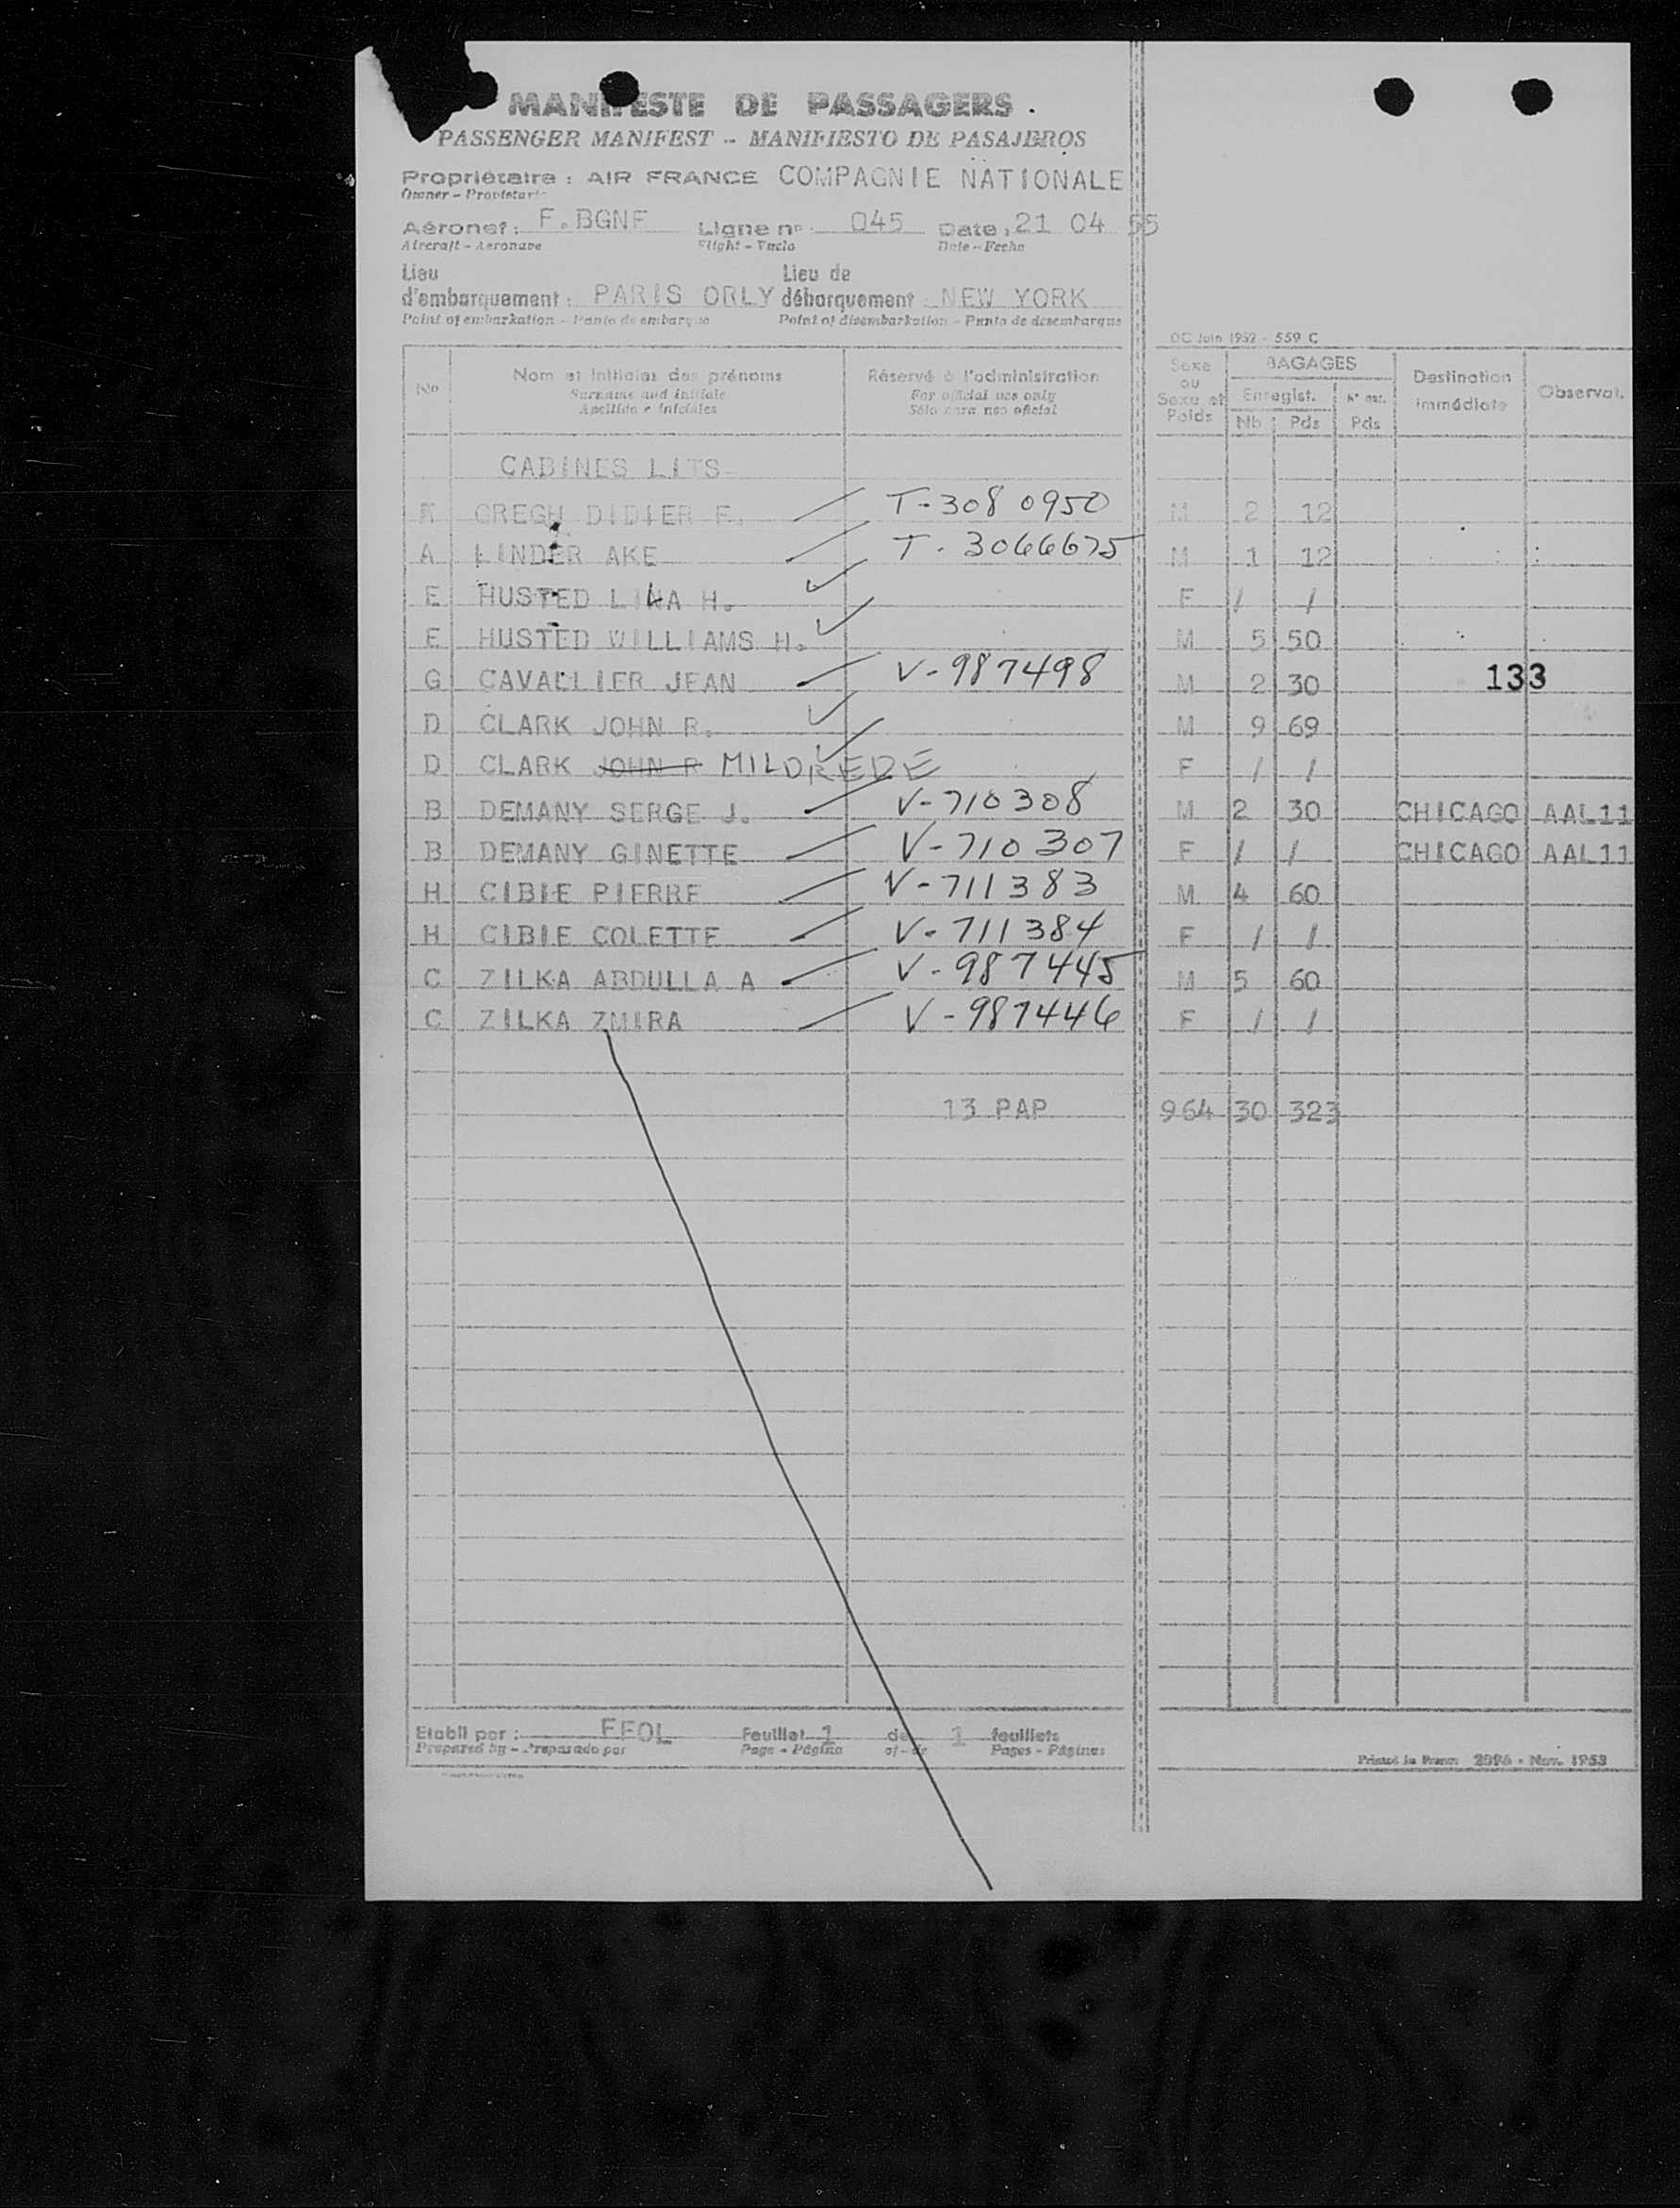 MANIFESTE DE PASSAGERS.
PASSENGER MANIFEST - MANIFIESTO DE PASAJEROS
Propriétaire : AIR FRANCE COMPAGNIE NATIONALE
Owner - Propietario
Aéronef : F.BGNF Ligne nº : 045 Date : 21 04 55
Aircraft - Aeronave Flight - Vuelo Date - Fecha
Lieu d'embarquement : PARIS ORLY Lieu de débarquement : NEW YORK
Point of embarkation - Punto de embarque Point of disembarkation - Punto de desembarque
OC Juin 1952 - 559 C
No Nom et initiales des prénoms Réservé à l'administration Sexe ou Sexe et Poids BAGAGES Destination immédiate Observat.
Surname and initials For official use only Enregist. Nº enr.
Apellido e iniciales Sólo para uso oficial Nb Pds Pds
CABINES LITS
GREGH DIDIER F. T-3080950 M 2 12
A LINDER AKE T-3066675 M 1 12
E HUSTED LINA H. F / /
E HUSTED WILLIAMS H. M 5 50
G CAVALLIER JEAN V-987498 M 2 30 133
D CLARK JOHN R. M 9 69
D CLARK JOHN R MILDREDE F / /
B DEMANY SERGE J. V-710308 M 2 30 CHICAGO AAL11
B DEMANY GINETTE V-710307 F / / CHICAGO AAL11
H CIBIE PIERRE V-711383 M 4 60
H CIBIE COLETTE V-711384 F / /
C ZILKA ABDULLA A V-987445 M 5 60
C ZILKA ZMIRA V-987446 F / /
13 PAP 964 30 323
Etabli par : FFOL Feuillet 1 de 1 feuillets
Prepared by - Preparado por Page - Página of - de Pages - Páginas
Printed in France 2096 - Nov. 1953